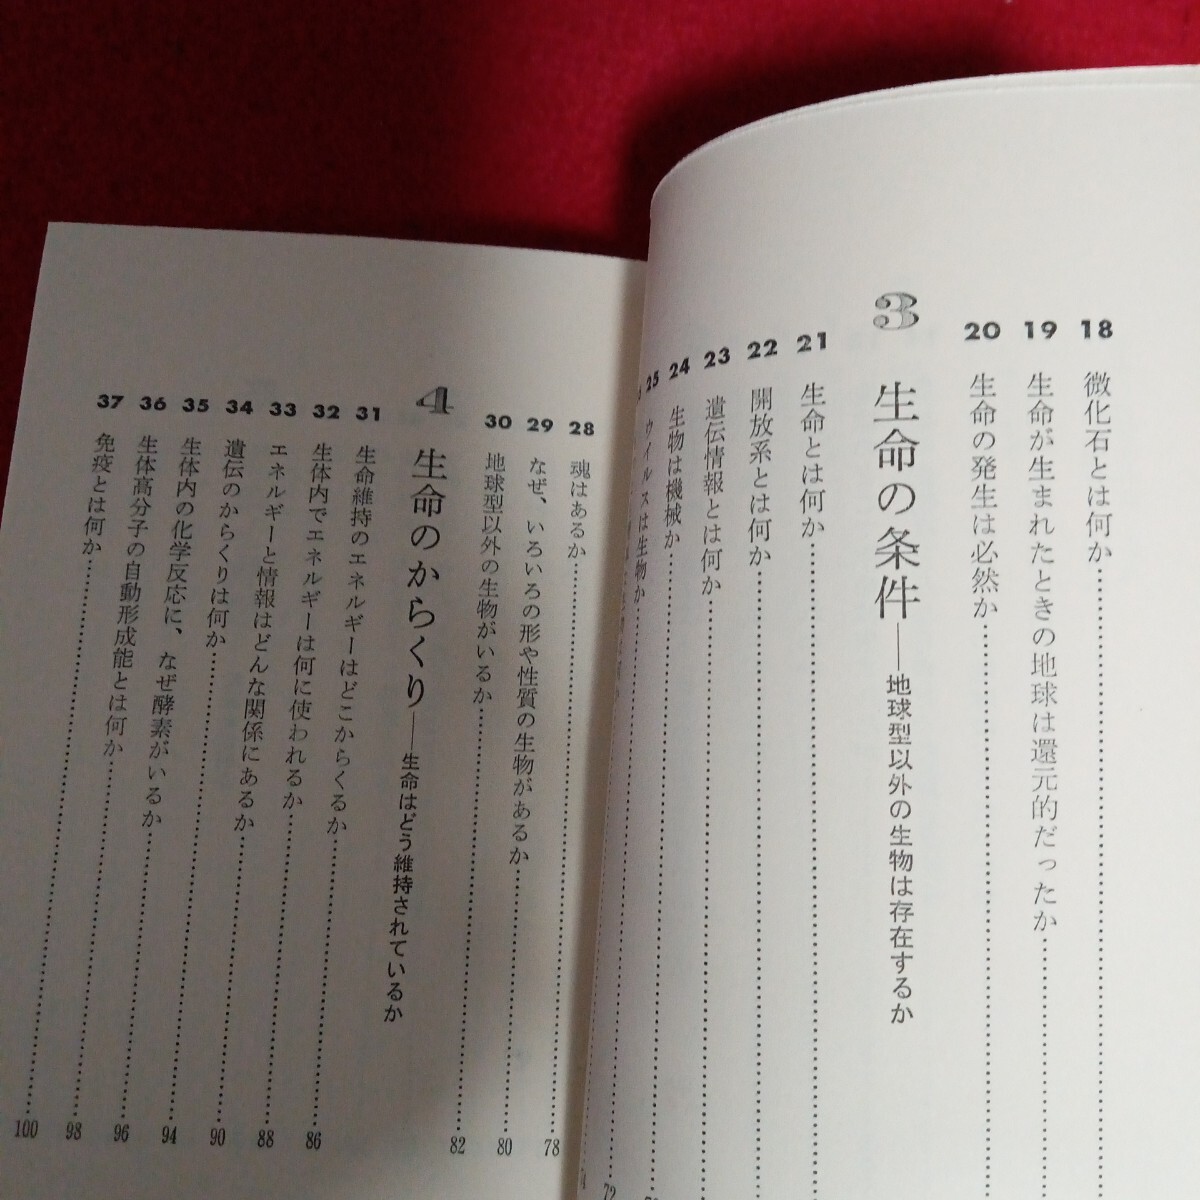 18 微化石とは何か
19 生命が生まれたときの地球は還元的だったか
20 生命の発生は必然か
3 生命の条件——地球型以外の生物は存在するか
21 生命とは何か
22 開放系とは何か
23 遺伝情報とは何か
24 生物は機械か
25 ウイルスは生物か
72
28 魂はあるか 78
29 なぜ、いろいろの形や性質の生物があるか 80
30 地球型以外の生物がいるか 82
4 生命のからくり——生命はどう維持されているか
31 生命維持のエネルギーはどこからくるか 86
32 生体内でエネルギーは何に使われるか 88
33 エネルギーと情報はどんな関係にあるか 90
34 遺伝のからくりは何か 94
35 生体内の化学反応に、なぜ酵素がいるか 96
36 生体高分子の自動形成能とは何か 98
37 免疫とは何か 100